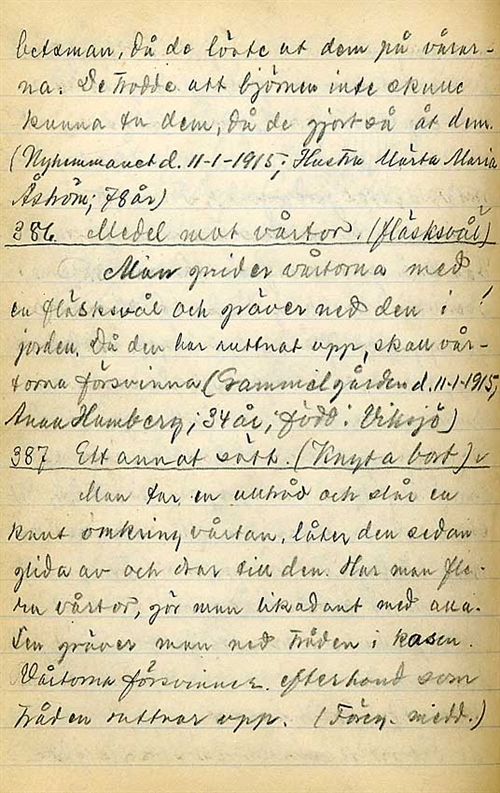 betsman, då de löste ut dem på vårar-
na. De trodde att björnen inte skulle
kunna ta dem, då de gjort så åt dem.
(Nyhemmanet d. 11-1-1915; Hustru Märta Maria
Åström; 78 år)
386. Medel mot vårtor. (fläsksvål)
Man gnider vårtorna med
en fläsksvål och gräver ned den i
jorden. Då den har ruttnat upp, skall vår-
torna försvinna (Gammelgården d. 11-1-1915,
Anna Hamberg; 34 år; född i Viksjö)
387 Ett annat sätt. (Knyta bort) v
Man tar en ulltråd och slår en
knut omkring vårtan, låter den sedan
glida av och drar till den. Har man fle-
ra vårtor, gör man likadant med alla.
Sen gräver man ned tråden i kasen.
Vårtorna försvinner efterhand som
tråden ruttnar upp. (Föreg. medd.)